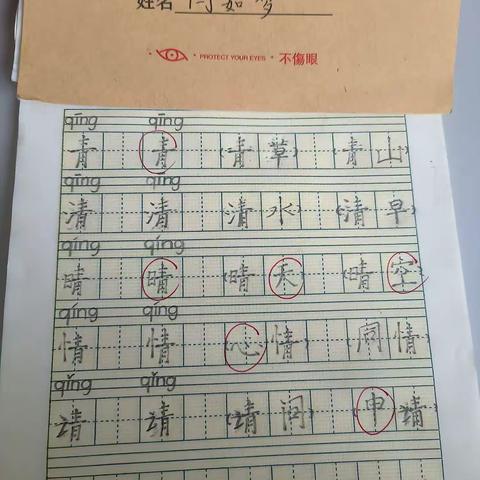 姓名
PROTECT YOUR EYES 不傷眼
qīng qīng
青 青 (青草) (青山)
qīng qīng
清 清 (清水) (清早)
qíng qíng
晴 晴 (晴天) (晴空)
qíng qíng
情 情 (心情) (同情)
qǐng qǐng
请 请 (请问) (申请)